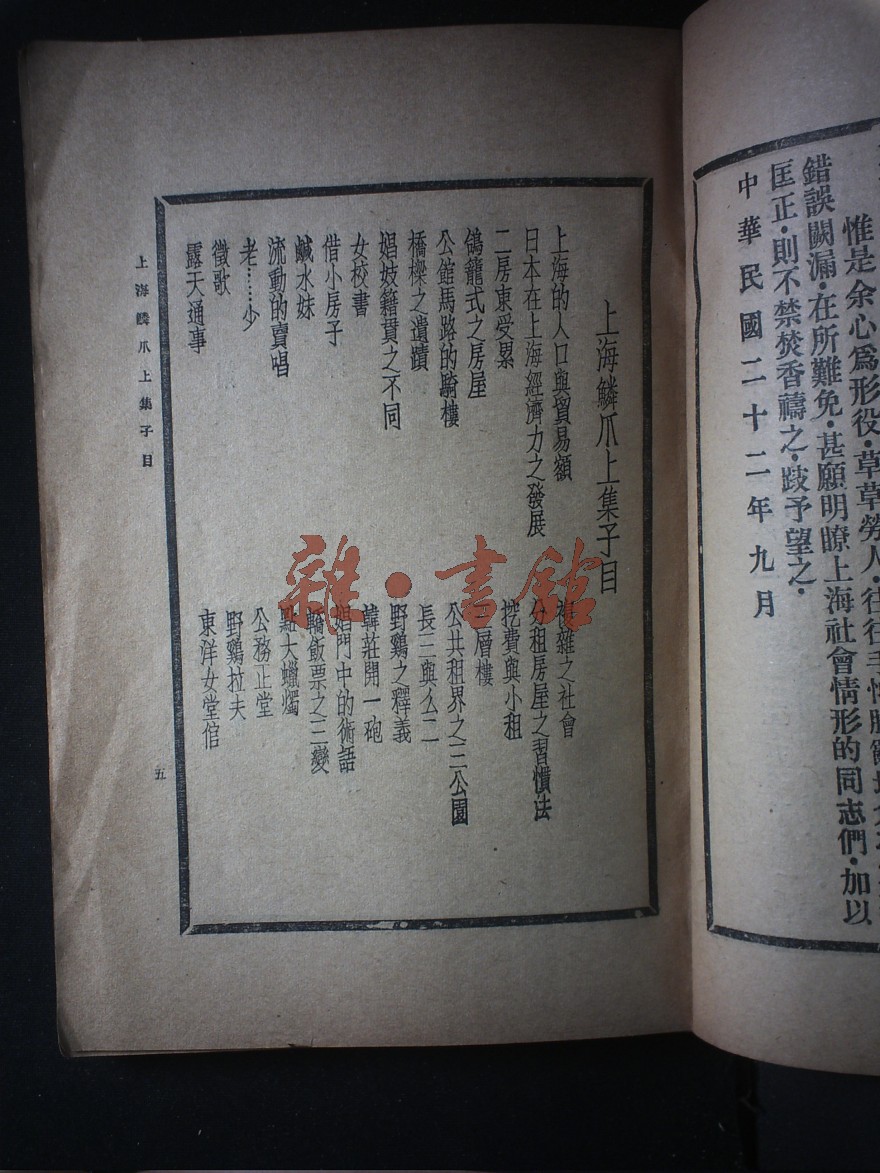 惟是余心爲形役·草草勞人·往往
錯誤闕漏·在所難免·甚願明瞭上海社會情形的同志們·加以
匡正·則不禁焚香禱之·跂予望之·
中華民國二十二年九月
上海鱗爪上集子目
上海的人口與貿易額
雜之社會
日本在上海經濟力之發展
分租房屋之習慣法
二房東受累
挖費與小租
鴿籠式之房屋
三層樓
公館馬路的騎樓
公共租界之三公園
橋樑之遺蹟
長三與么二
娼妓籍貫之不同
野鷄之釋義
女校書
韓莊開一砲
借小房子
娼門中的術語
鹹水妹
轎飯票之三變
流動的賣唱
點大蠟燭
老……少
公務正堂
徵歌
野鷄拉夫
露天通事
東洋女堂倌
上海鱗爪上集子目
五
雜·書館